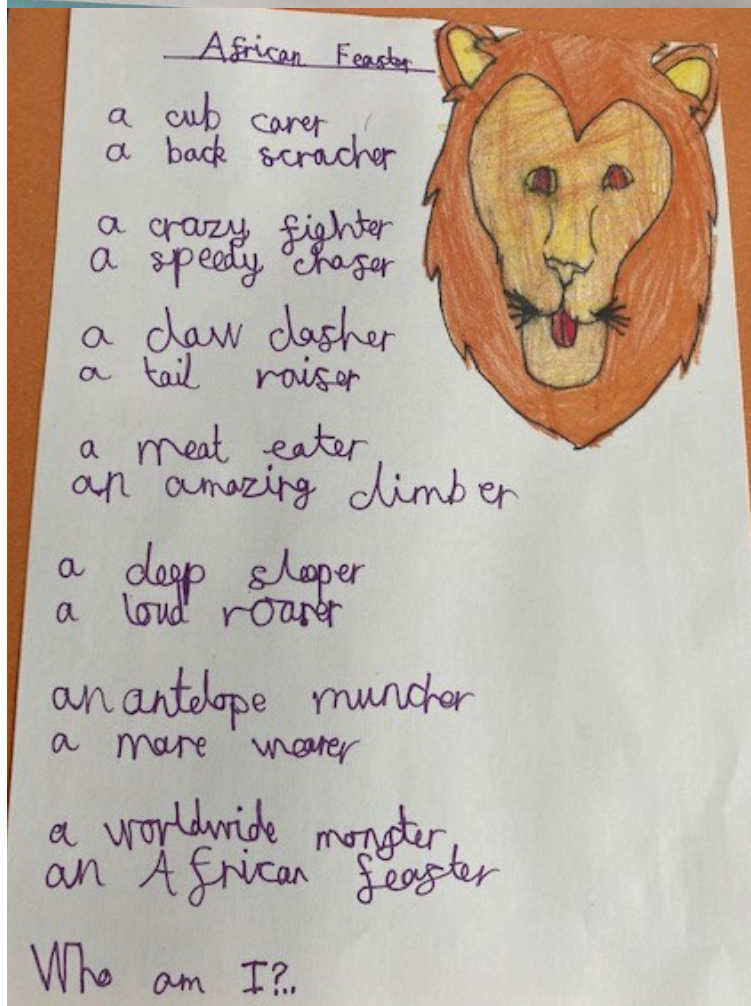 African Feaster
a cub carer
a back scracher
a crazy fighter
a speedy chaser
a claw dasher
a tail raiser
a meat eater
an amazing climber
a deep sleeper
a loud roarer
an antelope muncher
a mare wearer
a worldwide monster
an African feaster
Who am I?..